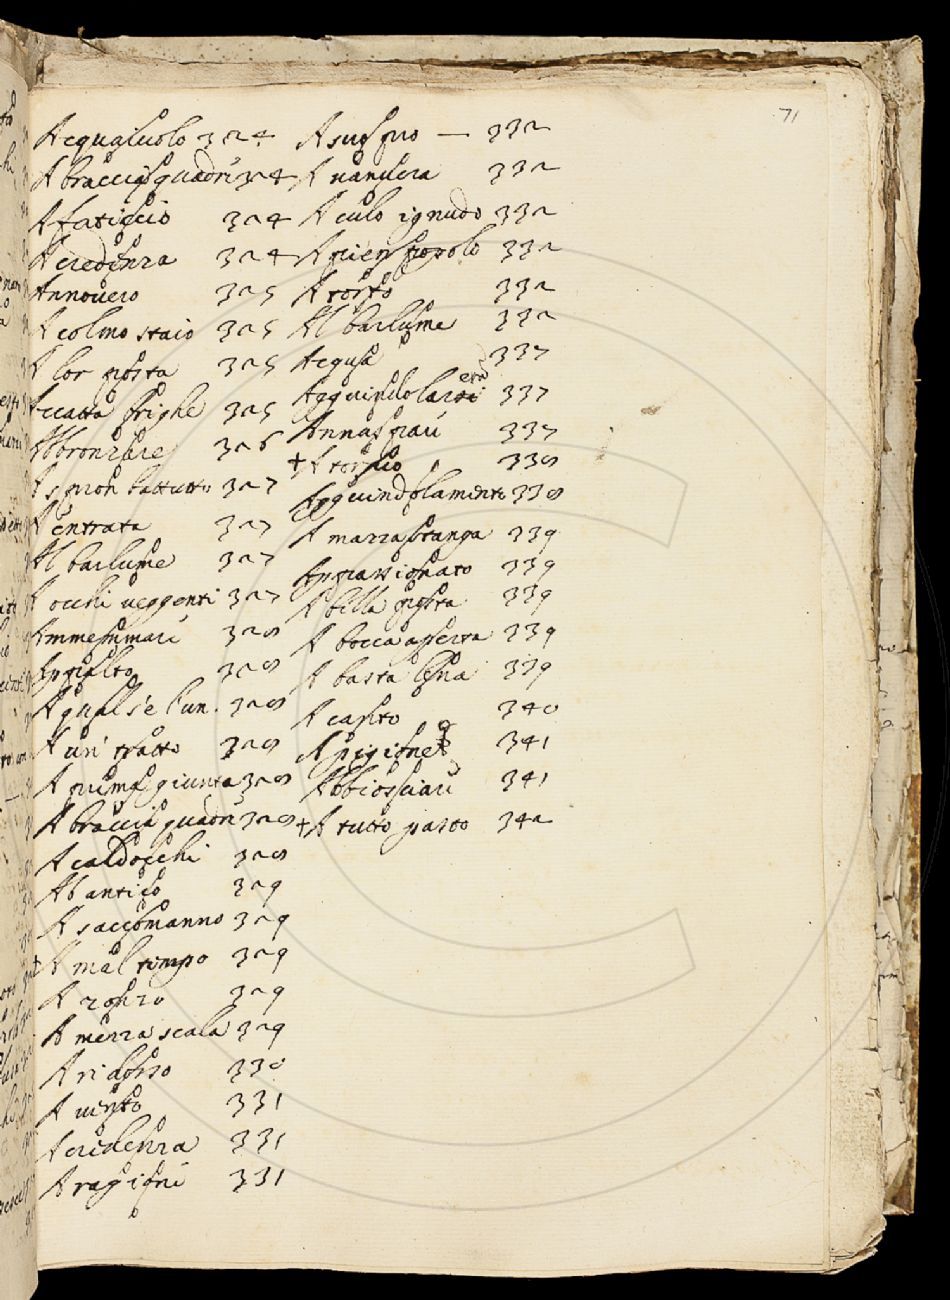 71
Acquaiuolo 324
A braccia quadri 324
A faticcio 324
A credenza 324
Annouero 325
A colmo staio 325
A lor posta 325
Accatta brighe 325
Abbronzare 326
A spron battutto 327
A entrata 327
Al barlume 327
A occhi ueggenti 327
328
Appicilto 328
A qual s'è l'un. 328
A un' tratto 328
A prima giunta 328
A braccia quadri 328
A caldocchi 328
Ab antico 329
A saccomanno 329
+ A mal tempo 329
A zonzo 329
A mezza scala 329
A ridosso 330
A uento 331
A credenza 331
A ragioni 331
A suo pro — 332
A uanuera 332
A culo ignudo 332
A pien popolo 332
A torto 332
Al barlume 332
Acqua 337
Agguindolare 337
Annaspari 337
+ A torsio 338
Agguindolamento 338
A mazzastanga 339
Appassionato 339
A bella posta 339
A bocca aperta 339
A basta lena 339
A canto 340
A pigione 341
Abbiosciari 341
+ A tutto pasto 342